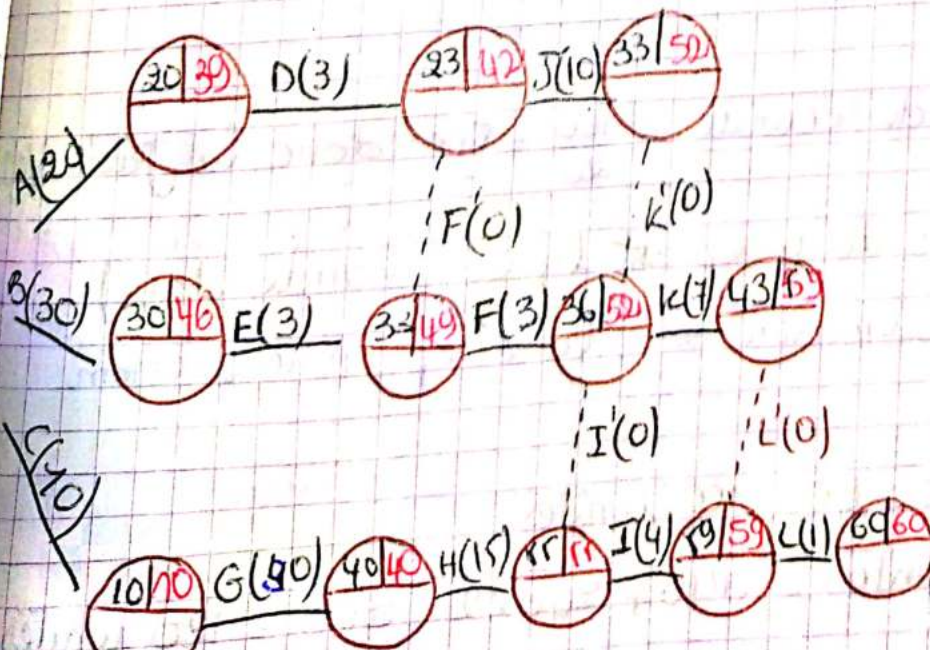 20 39 D(3) 23 42 J(10) 33 52
A(20)
F'(0) K'(0)
B(30) 30 46 E(3) 33 49 F(3) 36 52 K(7) 43 59
I'(0) L'(0)
C(10)
10 10 G(30) 40 40 H(15) 55 55 I(4) 59 59 L(1) 60 60